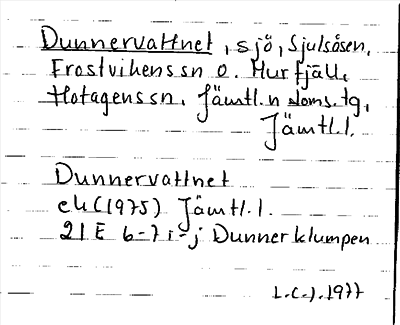 Dunnervattnet, sjö, Sjulsåsen,
Frostvikens sn o. Murfjäll,
Hotagens sn. Jämtl. n doms. tg,
Jämtl. l.
Dunnervattnet
ek (1975) Jämtl. l.
21 E 6-7 i-j Dunnerklumpen
1977